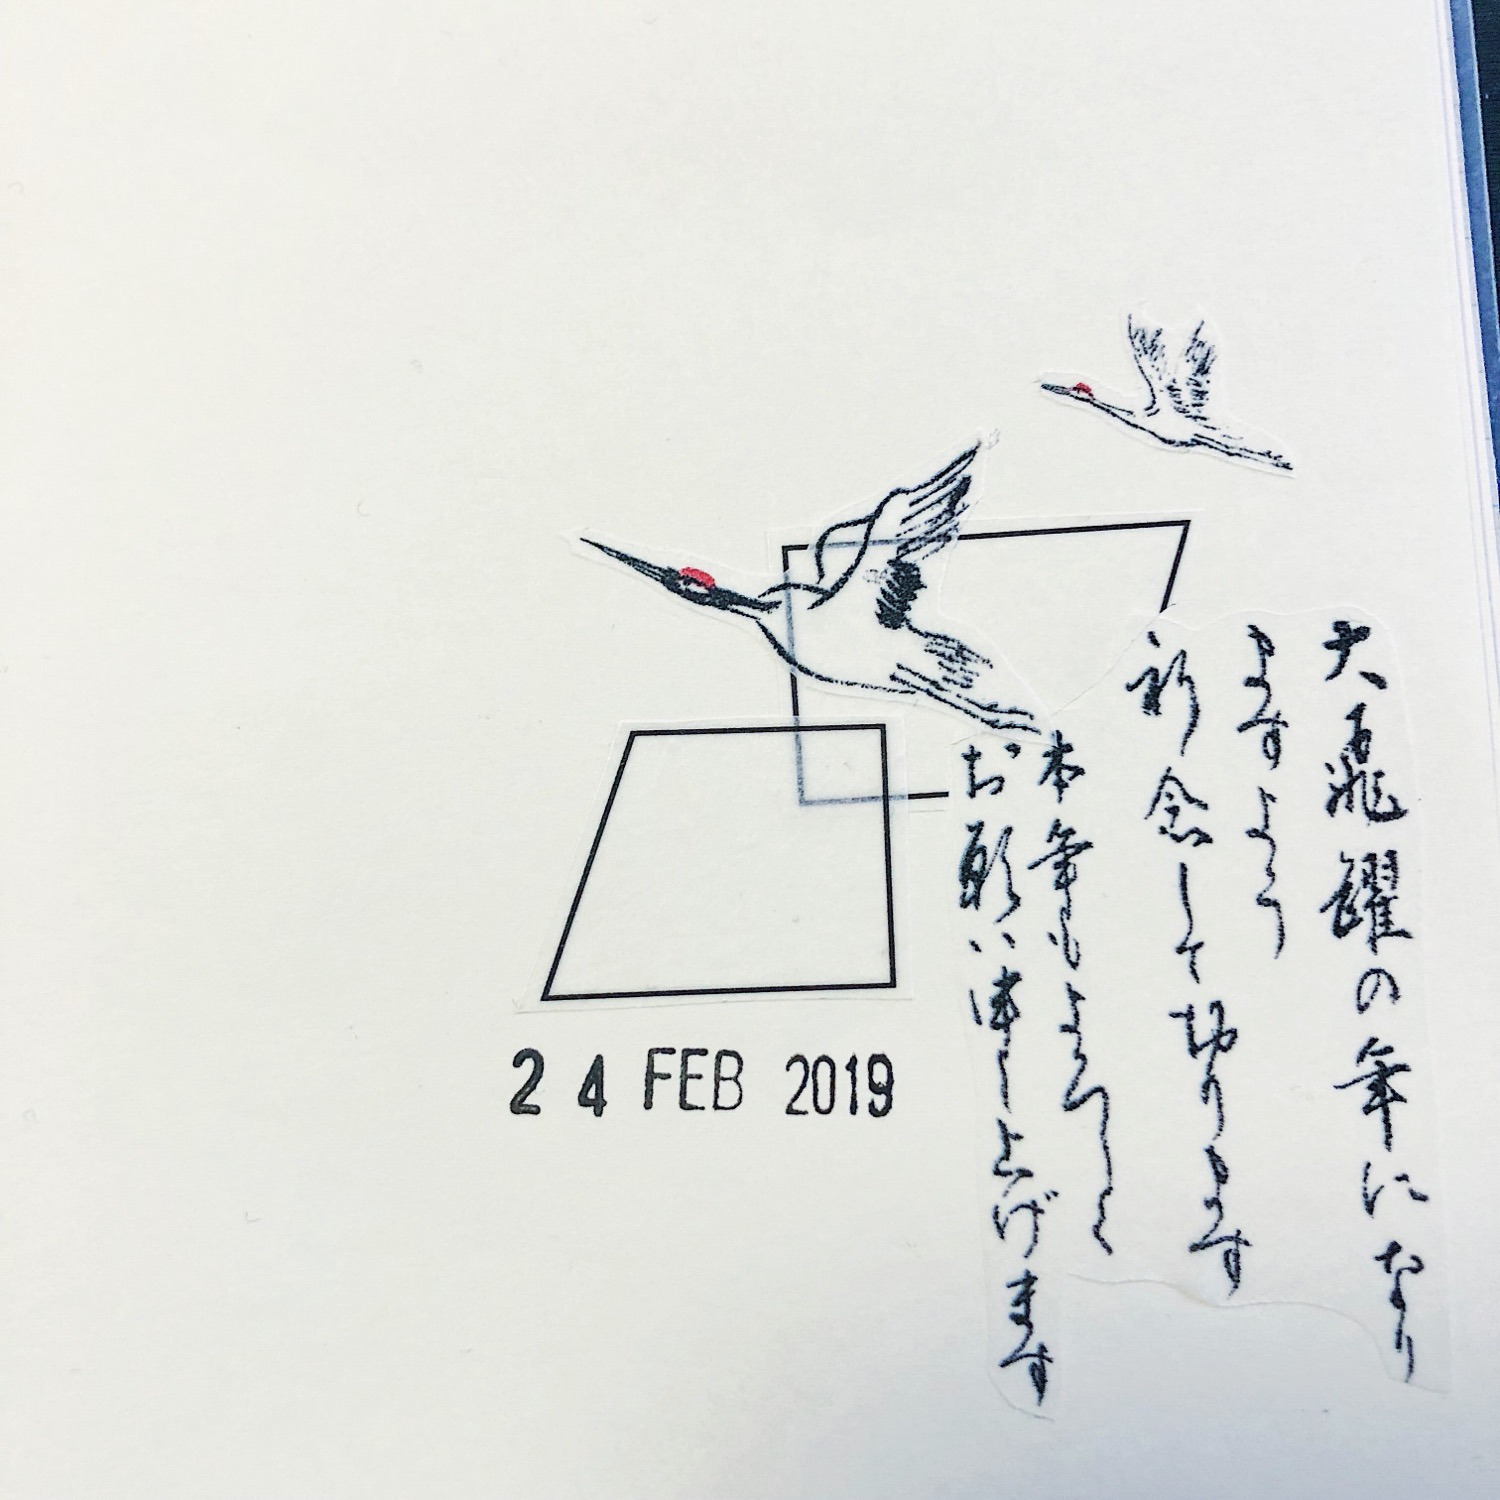 大飛躍の年になり
ますよう
祈念して切ります
本年もよろしく
お願い申し上げます
24 FEB 2019